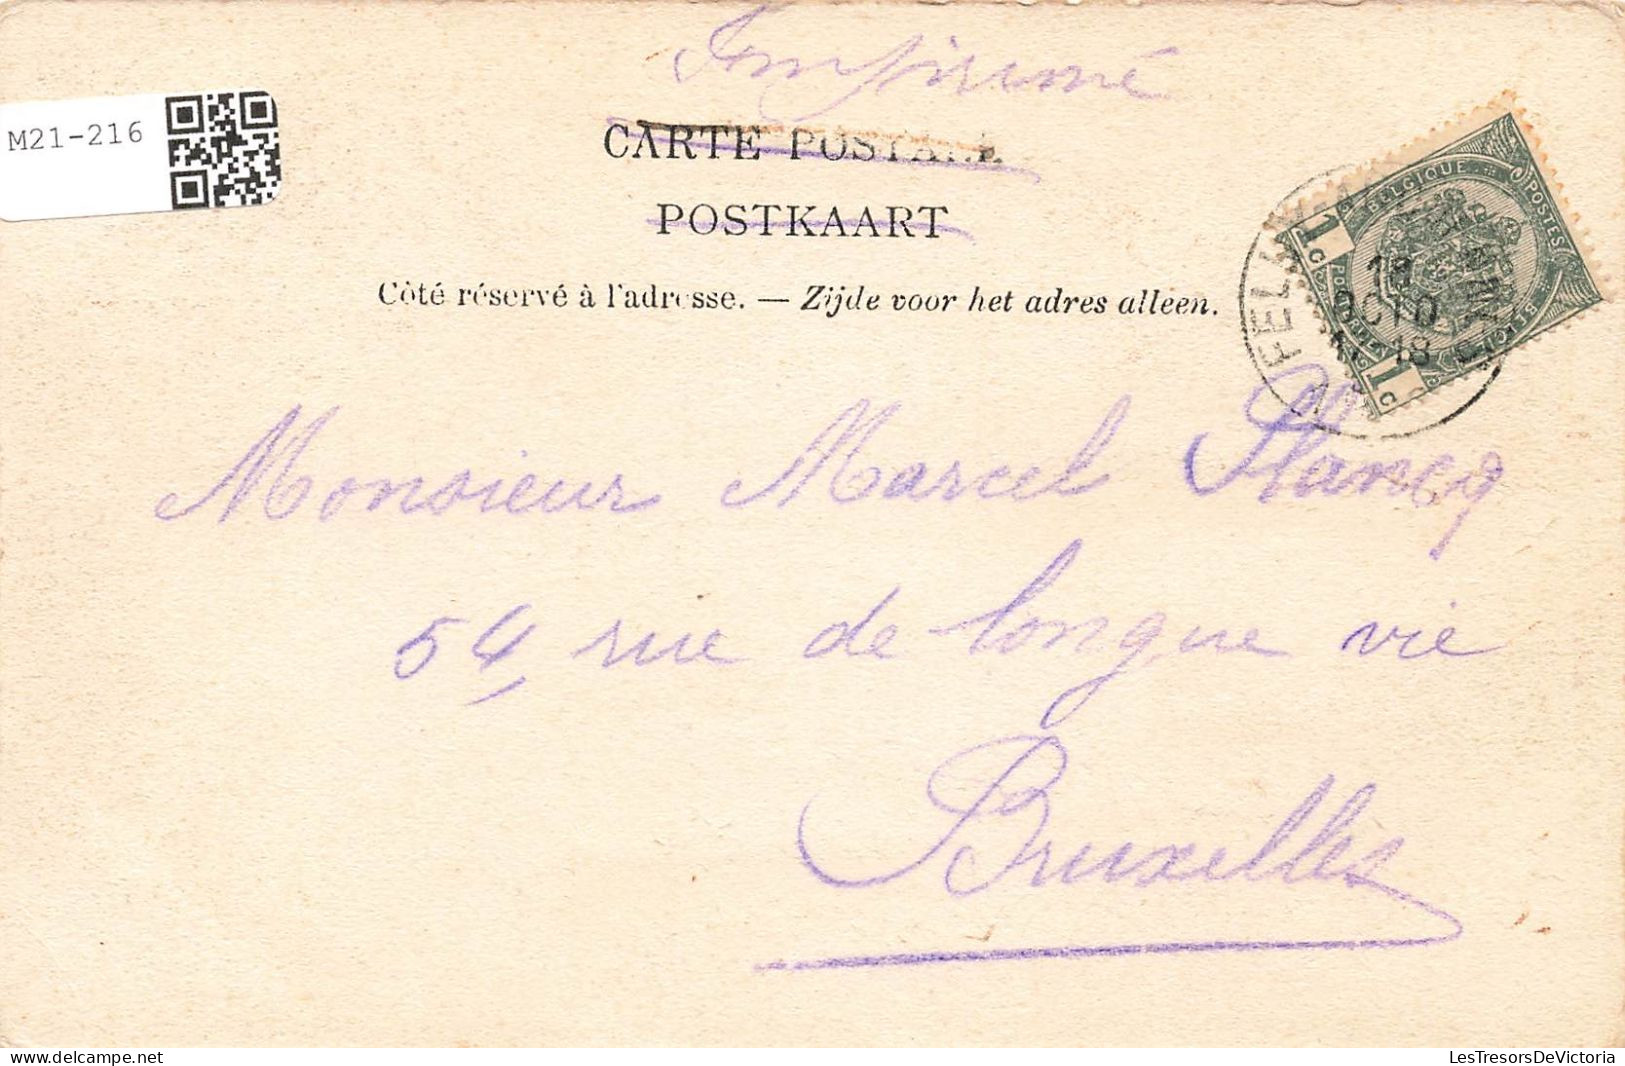 Imprimé
M21-216
CARTE POSTALE
POSTKAART
Côté réservé à l'adresse. — Zijde voor het adres alleen.
BELGIQUE POSTES
1 c
18
OCTO
18
1 c
Monsieur Marcel Plancq
54, rue de longue vie
Bruxelles
delcampe.net
LesTresorsDeVictoria